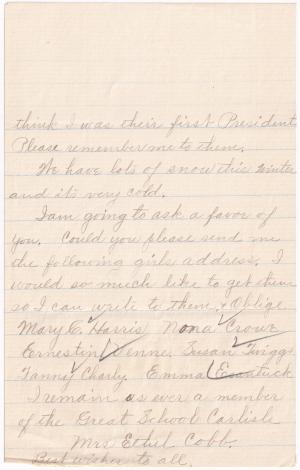 think I was their first President
Please remember me to them.
We have lots of snow this winter
and its very cold.
I am going to ask a favor of
you. Could you please send me
the following girls address. I
would so much like to get them
so I can write to them. & Oblige
Mary C. Harris Nona Crowe
Ernestin Venne. Susan Twiggs
Fannie Charly. Emma
I remain as ever a member
of the Great School Carlisle
Mrs Ethel Cobb.
Best wishes to all.